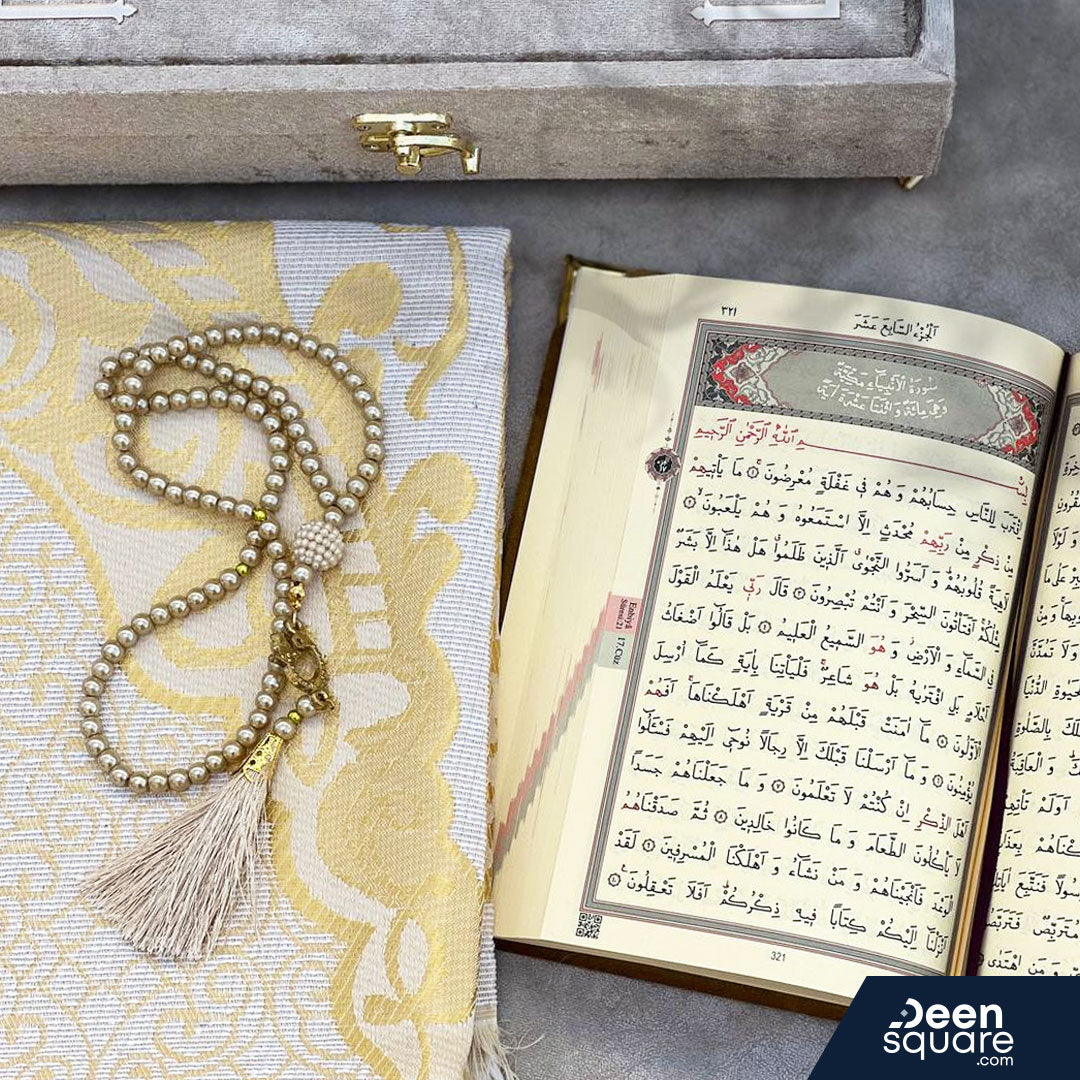 ٣٢١
اَلْجُزْءُ السَّابِعَ عَشَرَ
سُورَةُ الْاَنْبِيَاءِ مَكِّيَّةٌ
وَهِيَ مِائَةٌ وَاثْنَتَا عَشْرَةَ اٰيَةً
بِسْمِ اللّٰهِ الرَّحْمٰنِ الرَّحِيمِ
اِقْتَرَبَ لِلنَّاسِ حِسَابُهُمْ وَهُمْ فِي غَفْلَةٍ مُعْرِضُونَ ﴿١﴾ مَا يَأْتِيهِمْ
مِنْ ذِكْرٍ مِنْ رَبِّهِمْ مُحْدَثٍ اِلَّا اسْتَمَعُوهُ وَهُمْ يَلْعَبُونَ ﴿٢﴾
لَاهِيَةً قُلُوبُهُمْ وَاَسَرُّوا النَّجْوٰى الَّذِينَ ظَلَمُوا هَلْ هٰذَا اِلَّا بَشَرٌ
مِثْلُكُمْ اَفَتَأْتُونَ السِّحْرَ وَاَنْتُمْ تُبْصِرُونَ ﴿٣﴾ قَالَ رَبِّي يَعْلَمُ الْقَوْلَ
فِي السَّمَاءِ وَالْاَرْضِ وَهُوَ السَّمِيعُ الْعَلِيمُ ﴿٤﴾ بَلْ قَالُوا اَضْغَاثُ
اَحْلَامٍ بَلِ افْتَرٰيهُ بَلْ هُوَ شَاعِرٌ فَلْيَأْتِنَا بِاٰيَةٍ كَمَا اُرْسِلَ
الْاَوَّلُونَ ﴿٥﴾ مَا اٰمَنَتْ قَبْلَهُمْ مِنْ قَرْيَةٍ اَهْلَكْنَاهَا اَفَهُمْ
يُؤْمِنُونَ ﴿٦﴾ وَمَا اَرْسَلْنَا قَبْلَكَ اِلَّا رِجَالًا نُوحِي اِلَيْهِمْ فَسْـَٔلُوا
اَهْلَ الذِّكْرِ اِنْ كُنْتُمْ لَا تَعْلَمُونَ ﴿٧﴾ وَمَا جَعَلْنَاهُمْ جَسَدًا
لَا يَأْكُلُونَ الطَّعَامَ وَمَا كَانُوا خَالِدِينَ ﴿٨﴾ ثُمَّ صَدَقْنَاهُمُ
الْوَعْدَ فَاَنْجَيْنَاهُمْ وَمَنْ نَشَاءُ وَاَهْلَكْنَا الْمُسْرِفِينَ ﴿٩﴾ لَقَدْ
اَنْزَلْنَا اِلَيْكُمْ كِتَابًا فِيهِ ذِكْرُكُمْ اَفَلَا تَعْقِلُونَ ﴿١٠﴾
Enbiyâ
Sûresi/21
17.Cüz
321
Deen
square
.com